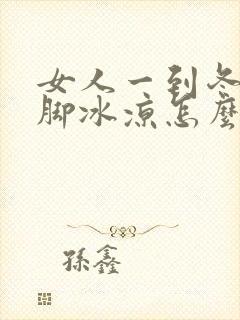 女人一到冬
脚冰凉怎麼
孫鑫